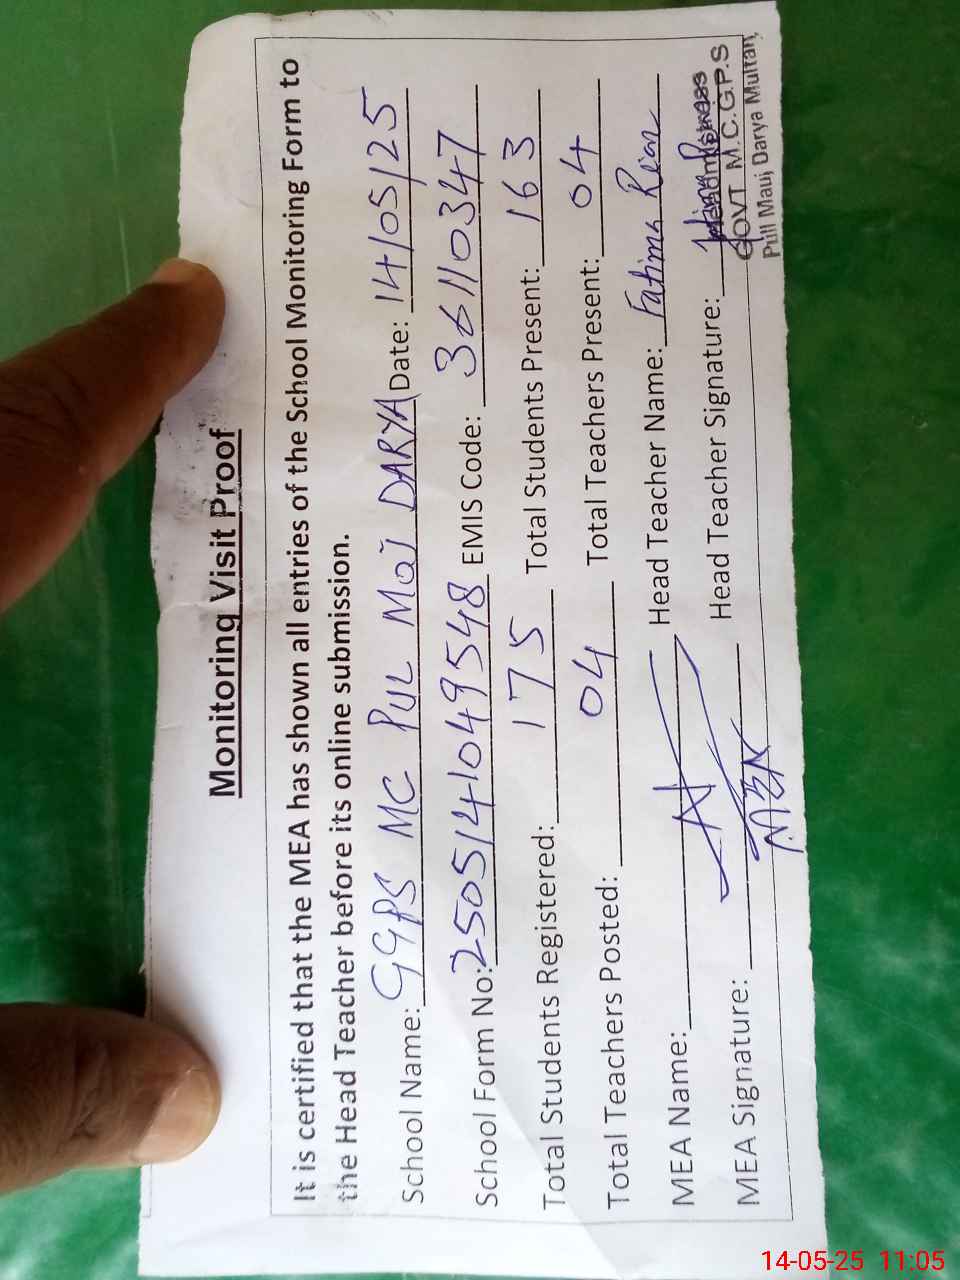 Monitoring Visit Proof
It is certified that the MEA has shown all entries of the School Monitoring Form to
the Head Teacher before its online submission.
School Name: GGPS MC PUL MOJ DARYA Date: 14/05/25
School Form No: 2505141049548 EMIS Code: 36110347
Total Students Registered: 175 Total Students Present: 163
Total Teachers Posted: 04 Total Teachers Present: 04
MEA Name: Head Teacher Name: Fatima
MEA Signature: Head Teacher Signature:
Headmistress
GOVT M.C.G.P.S
Pull Mauj Darya Multan,
14-05-25 11:05